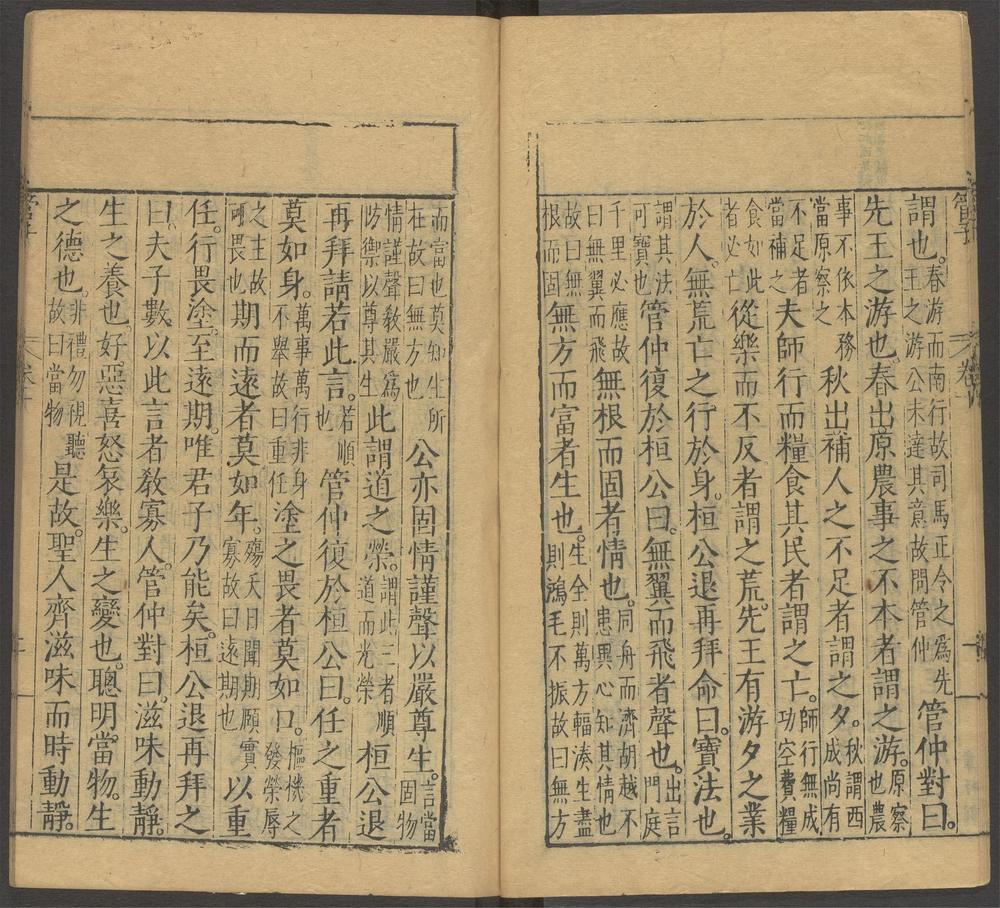 管子 卷十
謂也。春游而南行故司馬正令之為先王之游公未達其意故問管仲管仲對曰。
先王之游也。春出原農事之不本者謂之游。原察也農
事不依本務當原察之秋出補人之不足者謂之夕。秋謂西成尚有
不足者當補之夫師行而糧食其民者謂之亡。師行無成功空費糧
食如此者必亡從樂而不反者謂之荒。先王有游夕之業
於人。無荒亡之行於身。桓公退再拜命曰。寶法也。
謂其法可寶也管仲復於桓公曰。無翼而飛者聲也。出言門庭
千里必應故曰無翼而飛無根而固者情也。同舟而濟胡越不患異心知其情也
故曰無根而固無方而富者生也。生全則萬方輻湊生盡則鴻毛不振故曰無方
而富也莫知生所在故曰無方也公亦固情謹聲以嚴尊生。言當固物
情謹聲教嚴為防禦以尊其生此謂道之榮。謂此三者順道而光榮桓公退
再拜請若此言。若順也管仲復於桓公曰。任之重者
莫如身。萬事萬行非身不舉故曰重任塗之畏者莫如口。樞機之發榮辱
之主故可畏也期而遠者莫如年。殤夭日聞期願實寡故曰遠期也以重
任。行畏塗。至遠期。唯君子乃能矣。桓公退再拜之
曰。夫子數以此言者教寡人。管仲對曰。滋味動靜。
生之養也。好惡喜怒哀樂。生之變也。聰明當物。生
之德也。非禮勿視聽故曰當物是故聖人齊滋味而時動靜。